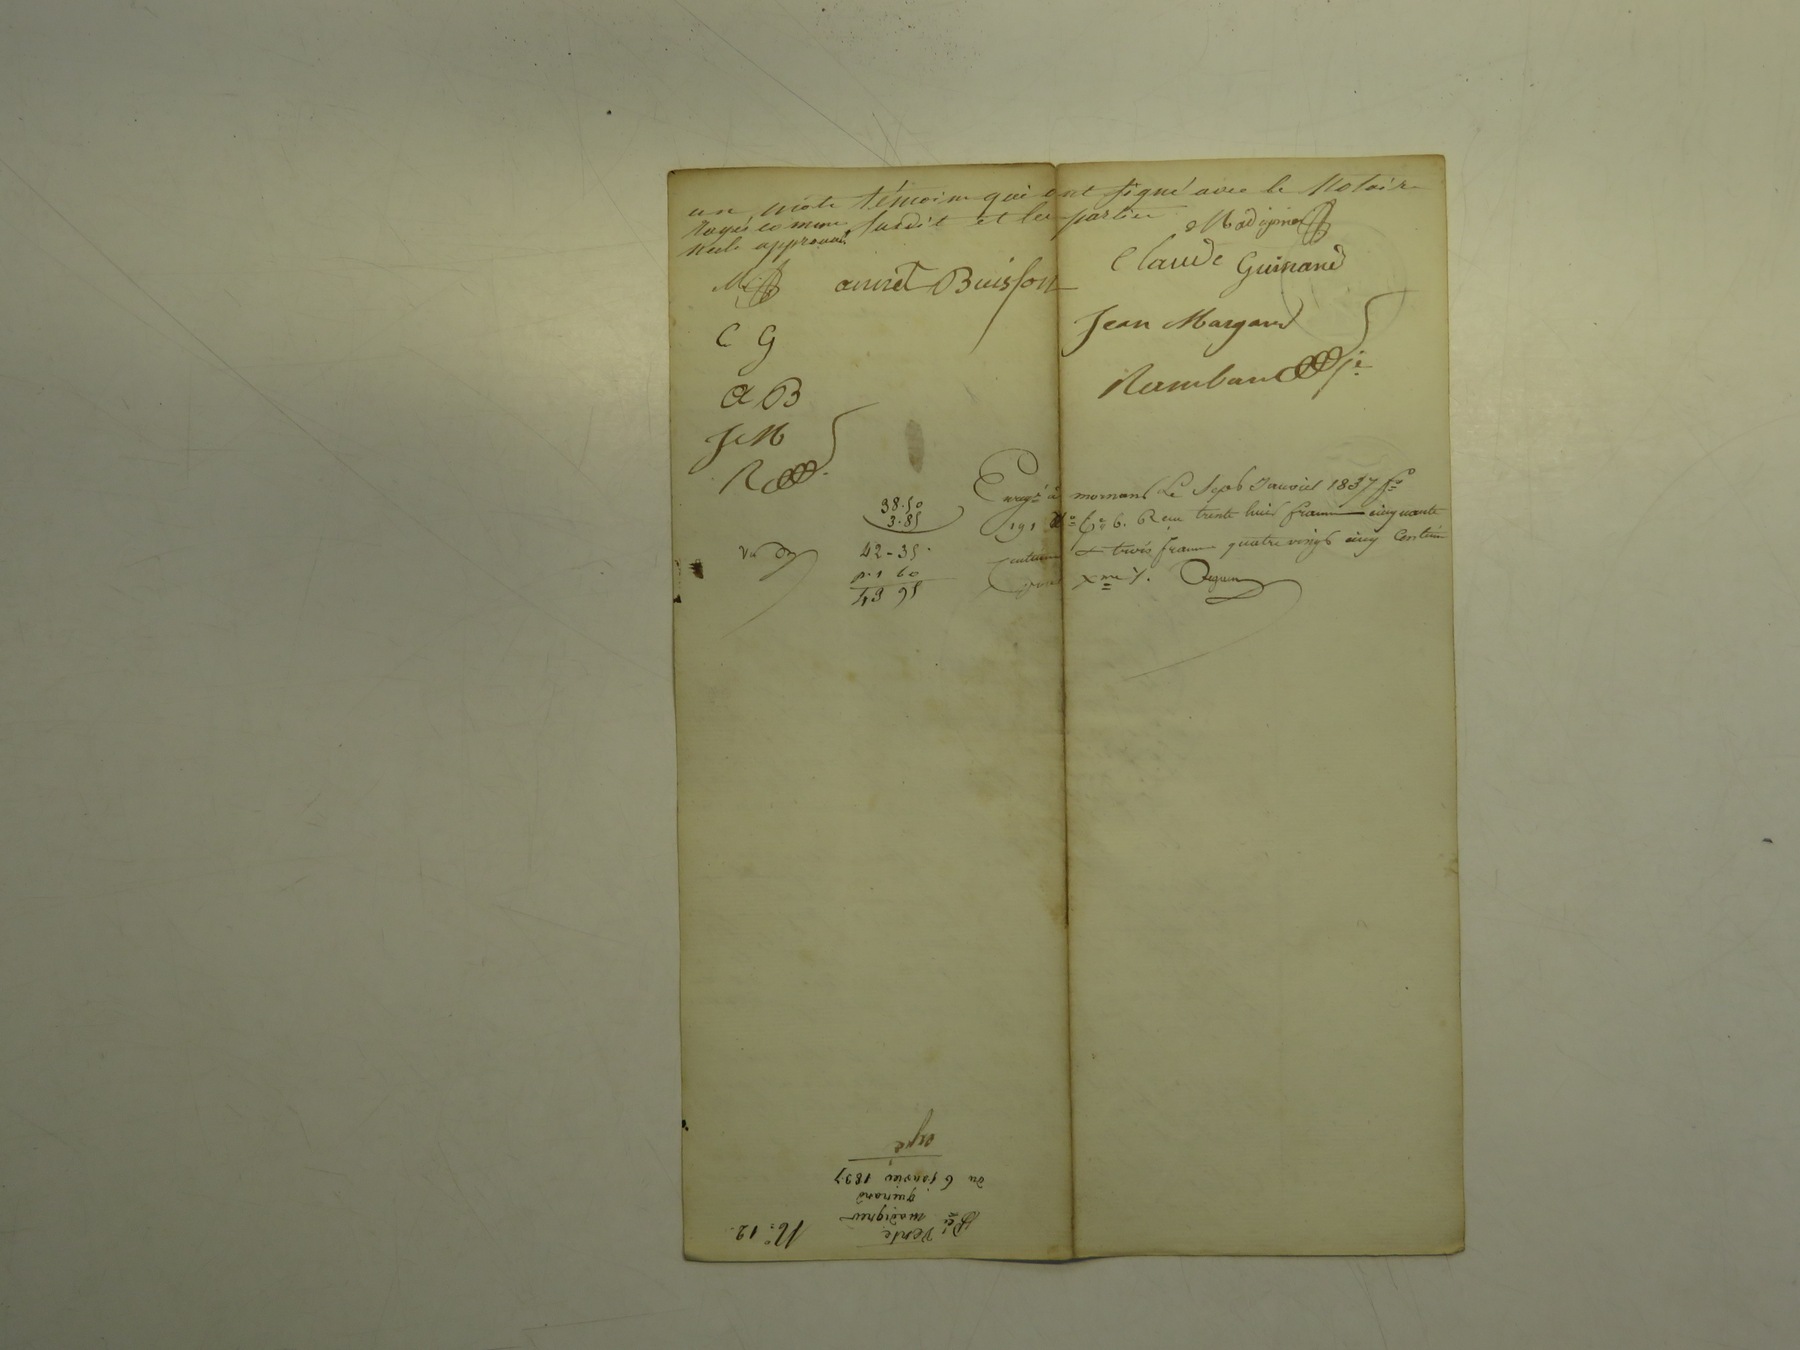 un mots témoins qui ont signé avec le Notaire
Rayé comme susdit et les parties
nuls approuvé
Madignier
Claude Guinand
annet Buisson
Jean Margand
C G
Rambaud
a B
J M
R
Enregé à mornant Le Sept Janvier 1837 fo
191 Ro Ce 6. Reçu trente huit francs cinquante
centimes & trois francs quatre vingt cinq Centimes
pour Xme %.
38.50
3.85
42-35
1 60
43 95
Vu
No. 12.
Vente
madignier
guinand
du 6 janvier 1837
expé